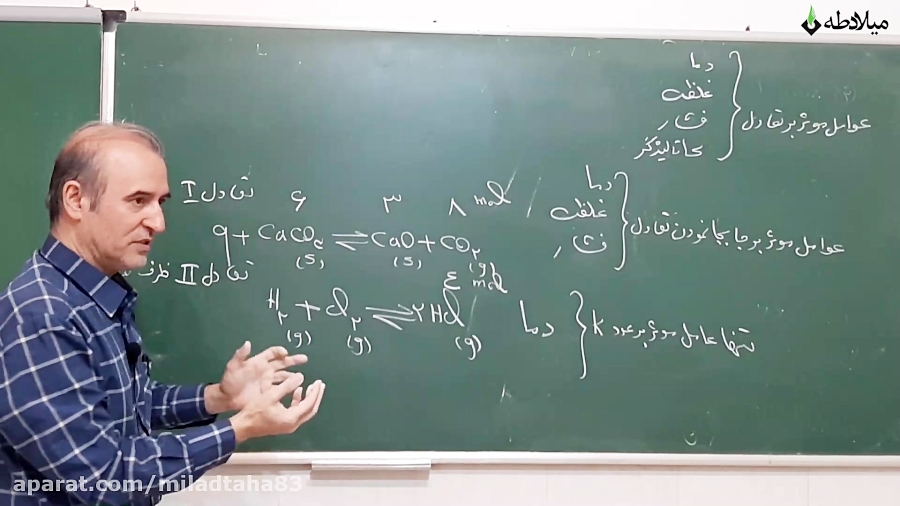 میلادطه
دما
غلظت
فشار
کاتالیزگر
عوامل موثر بر تعادل
دما
غلظت
فشار
عوامل موثر بر جابجا نمودن تعادل
دما
تنها عامل موثر بر عدد K
تعادل I
۶ ۳ ۸ mol
q + CaCO₃ ⇌ CaO + CO₂
(s) (s) (g)
تعادل II ظرف
۴ mol
H₂ + Cl₂ ⇌ ۲HCl
(g) (g) (g)
aparat.com/miladtaha83